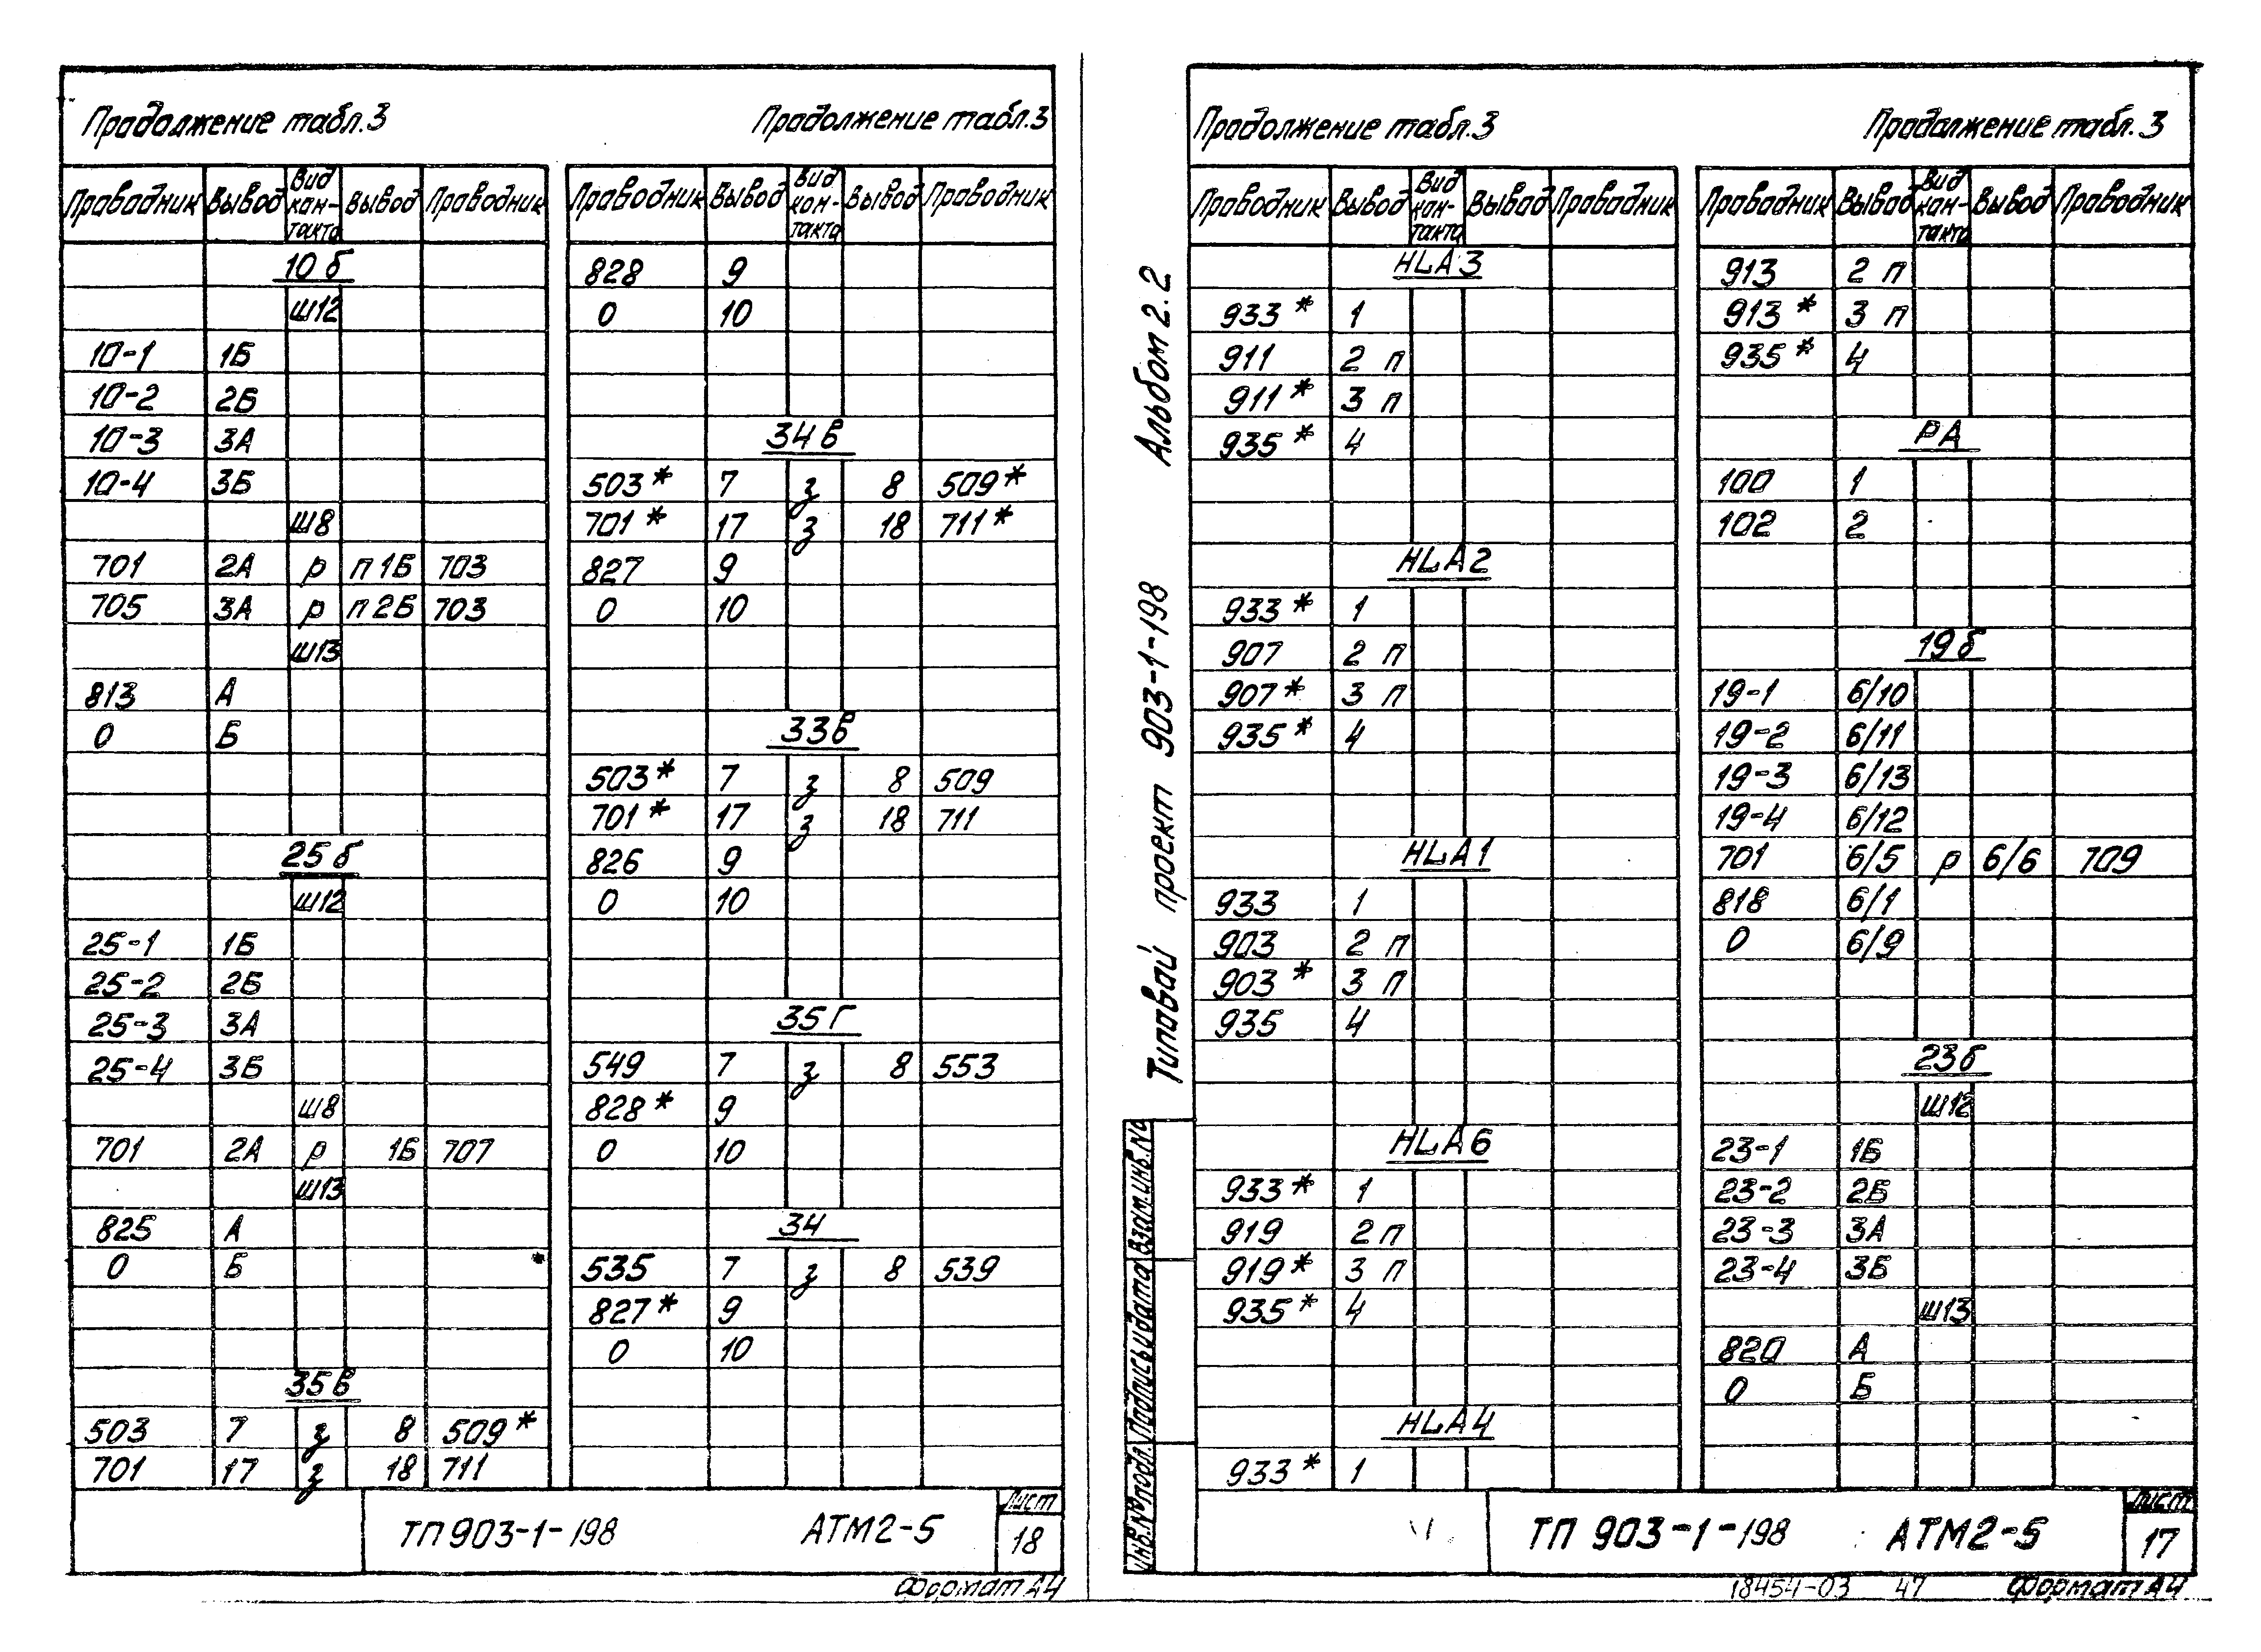 Продолжение табл.3
Проводник Вывод Вид кон-такта Вывод Проводник
10б
Ш12
10-1 1Б
10-2 2Б
10-3 3А
10-4 3Б
Ш8
701 2А р п 1Б 703
705 3А р п 2Б 703
Ш13
813 А
0 Б
25б
Ш12
25-1 1Б
25-2 2Б
25-3 3А
25-4 3Б
Ш8
701 2А р 1Б 707
Ш13
825 А
0 Б *
35в
503 7 з 8 509*
701 17 з 18 711
Продолжение табл.3
Проводник Вывод Вид кон-такта Вывод Проводник
828 9
0 10
34в
503* 7 з 8 509*
701* 17 з 18 711*
827 9
0 10
33в
503* 7 з 8 509
701* 17 з 18 711
826 9
0 10
35г
549 7 з 8 553
828* 9
0 10
34
535 7 з 8 539
827* 9
0 10
ТП 903-1-198 АТМ2-5
Лист
18
Формат А4
Альбом 2.2
Типовой проект 903-1-198
Взам.инв.№
Подпись и дата
Инв.№ подл.
Продолжение табл.3
Проводник Вывод Вид кон-такта Вывод Проводник
HLA3
933* 1
911 2 п
911* 3 п
935* 4
HLA2
933* 1
907 2 п
907* 3 п
935* 4
HLA1
933 1
903 2 п
903* 3 п
935 4
HLA6
933* 1
919 2 п
919* 3 п
935* 4
HLA4
933* 1
Продолжение табл.3
Проводник Вывод Вид кон-такта Вывод Проводник
913 2 п
913* 3 п
935* 4
РА
100 1
102 2
19б
19-1 6/10
19-2 6/11
19-3 6/13
19-4 6/12
701 6/5 р 6/6 709
818 6/1
0 6/9
23б
Ш12
23-1 1Б
23-2 2Б
23-3 3А
23-4 3Б
Ш13
820 А
0 Б
ТП 903-1-198 АТМ2-5
Лист
17
18454-03 47 Формат А4